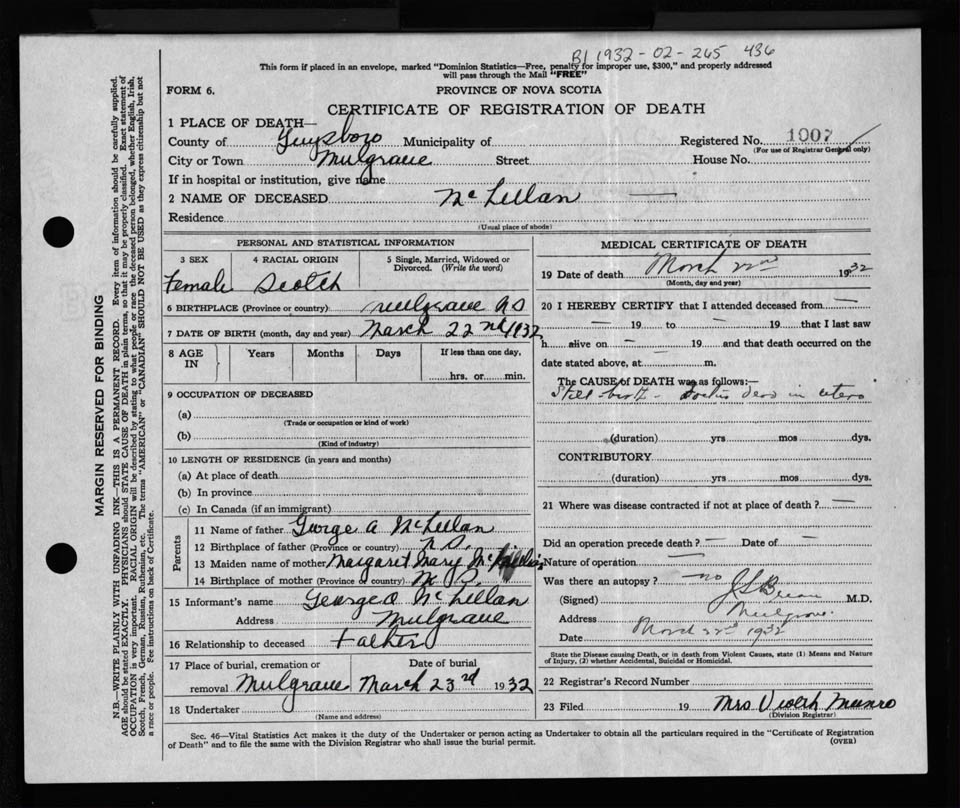 BJ 1932-02-265 436
This form if placed in an envelope, marked "Dominion Statistics—Free, penalty for improper use, $300," and properly addressed
will pass through the Mail "FREE"
FORM 6. PROVINCE OF NOVA SCOTIA
CERTIFICATE OF REGISTRATION OF DEATH
1 PLACE OF DEATH—
County of Guysboro Municipality of Registered No. 1007
(For use of Registrar General only)
City or Town Mulgrave Street House No.
If in hospital or institution, give name
2 NAME OF DECEASED McLellan —
Residence
(Usual place of abode)
PERSONAL AND STATISTICAL INFORMATION
3 SEX 4 RACIAL ORIGIN 5 Single, Married, Widowed or
Divorced. (Write the word)
Female Scotch
6 BIRTHPLACE (Province or country) Mulgrave N S
7 DATE OF BIRTH (month, day and year) March 22nd 1932
8 AGE IN Years Months Days If less than one day,
hrs. or min.
9 OCCUPATION OF DECEASED
(a)
(Trade or occupation or kind of work)
(b)
(Kind of industry)
10 LENGTH OF RESIDENCE (in years and months)
(a) At place of death
(b) In province
(c) In Canada (if an immigrant)
Parents
11 Name of father George A McLellan
12 Birthplace of father (Province or country) N S.
13 Maiden name of mother Margaret Mary
14 Birthplace of mother (Province or country) N S.
15 Informant's name George A McLellan
Address Mulgrave
16 Relationship to deceased Father
17 Place of burial, cremation or Date of burial
removal Mulgrave March 23rd 1932
18 Undertaker
(Name and address)
MEDICAL CERTIFICATE OF DEATH
19 Date of death March 22nd 1932
(Month, day and year)
20 I HEREBY CERTIFY that I attended deceased from —
— 19 to — 19 that I last saw
h alive on — 19 and that death occurred on the
date stated above, at m.
The CAUSE of DEATH was as follows:—
Still birth - Foetus dead in utero
(duration) yrs mos dys.
CONTRIBUTORY
(duration) yrs mos dys.
21 Where was disease contracted if not at place of death? —
Did an operation precede death? — Date of —
Nature of operation —
Was there an autopsy? — no
(Signed) M.D.
Address Mulgrave
Date March 22nd 1932
State the Disease causing Death, or in death from Violent Causes, state (1) Means and Nature
of Injury, (2) whether Accidental, Suicidal or Homicidal.
22 Registrar's Record Number
23 Filed 19 Mrs Violet Munro
(Division Registrar)
Sec. 46—Vital Statistics Act makes it the duty of the Undertaker or person acting as Undertaker to obtain all the particulars required in the "Certificate of Registration
of Death" and to file the same with the Division Registrar who shall issue the burial permit. (OVER)
MARGIN RESERVED FOR BINDING
N.B.—WRITE PLAINLY WITH UNFADING INK—THIS IS A PERMANENT RECORD. Every item of information should be carefully supplied.
AGE should be stated EXACTLY. PHYSICIANS should STATE CAUSE OF DEATH in plain terms, so that it may be properly classified. Exact statement of
OCCUPATION is very important. RACIAL ORIGIN will be described by stating to what people or race the deceased person belonged, whether English, Irish,
Scotch, French, German, Russian, Ruthenian, etc. The terms "AMERICAN" or "CANADIAN" SHOULD NOT BE USED as they express citizenship but not
a race or people. See instructions on back of Certificate.